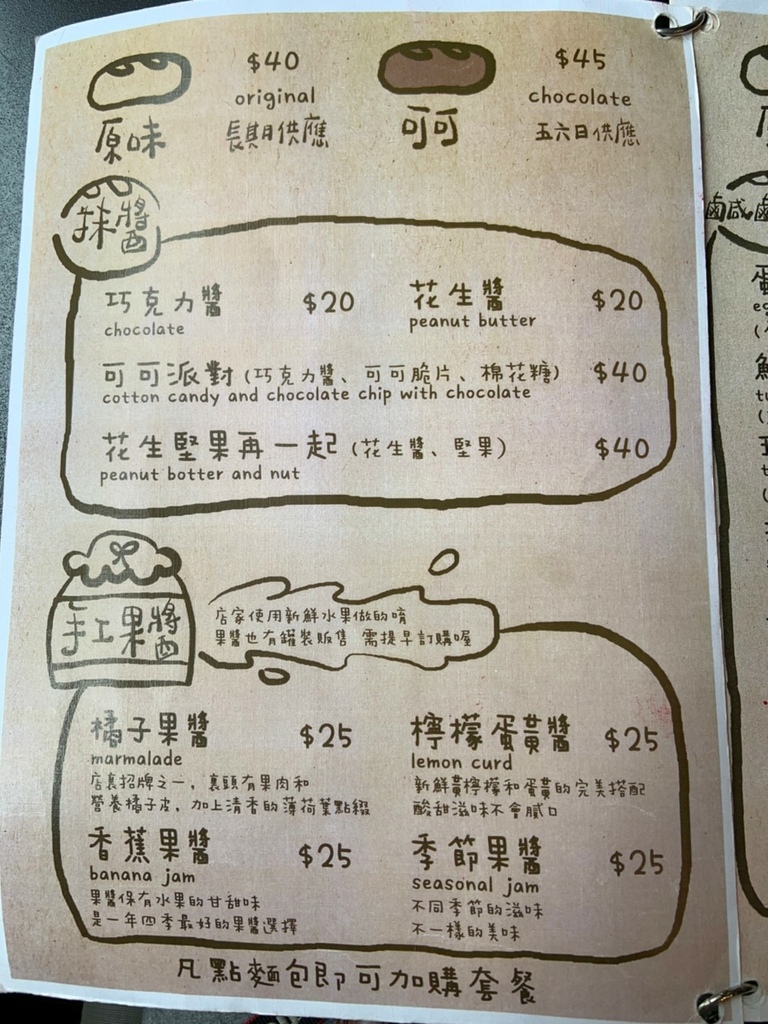 $40
original
原味
長期供應
$45
chocolate
可可
五六日供應
抹醬
巧克力醬 $20
chocolate
花生醬 $20
peanut butter
可可派對(巧克力醬、可可脆片、棉花糖) $40
cotton candy and chocolate chip with chocolate
花生堅果再一起(花生醬、堅果) $40
peanut botter and nut
手工果醬
店家使用新鮮水果做的唷
果醬也有罐裝販售 需提早訂購喔
橘子果醬 $25
marmalade
店裏招牌之一,裏頭有果肉和
營養橘子皮,加上清香的薄荷葉點綴
檸檬蛋黃醬 $25
lemon curd
新鮮黃檸檬和蛋黃的完美搭配
酸甜滋味不會膩口
香蕉果醬 $25
banana jam
果醬保有水果的甘甜味
是一年四季最好的果醬選擇
季節果醬 $25
seasonal jam
不同季節的滋味
不一樣的美味
凡點麵包即可加購套餐